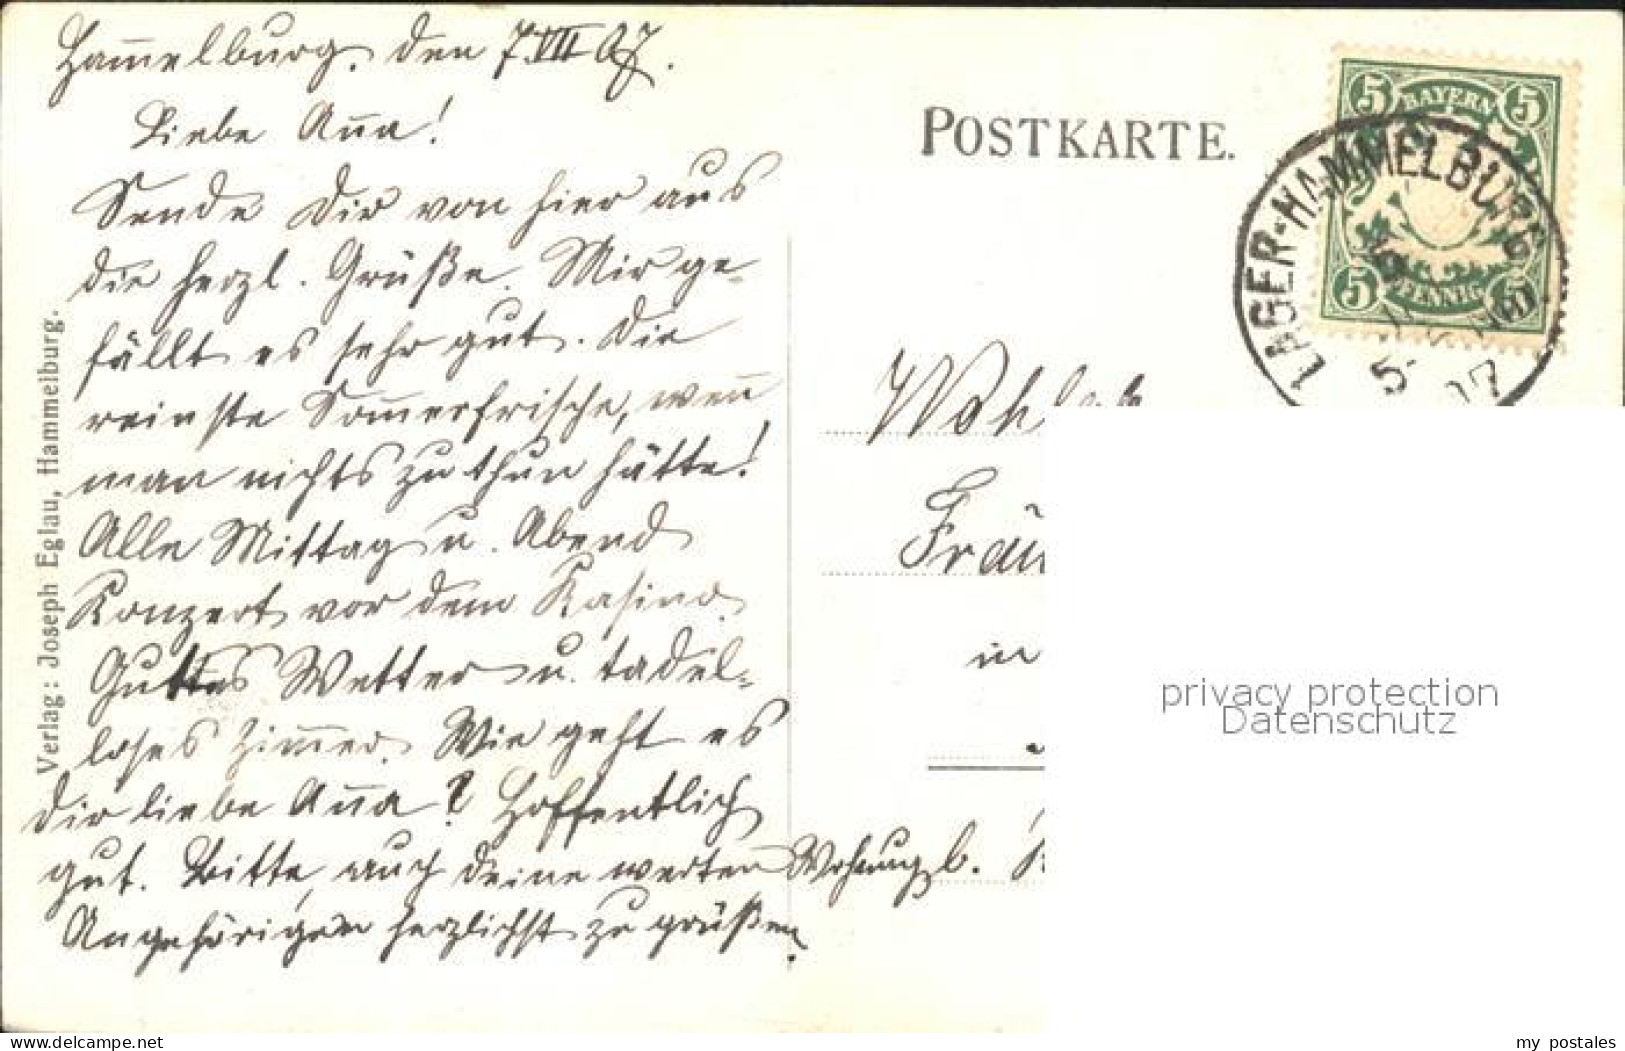 Hammelburg, den 7.VII 07.
Liebe Anna!
Sende Dir von hier aus
die herzl. Grüße. Mir ge-
fällt es sehr gut. Die
reinste Sommerfrische, wenn
man nichts zu thun hätte!
Alle Mittag u. Abend
Konzert vor dem Kasino.
Guttes Wetter u. tadel-
loses Zimmer. Wie geht es
Dir liebe Anna? Hoffentlich
gut. Bitte, auch Deine werten
Angehörigen herzlichst zu grüßen.
Verlag: Joseph Eglau, Hammelburg.
POSTKARTE.
5 BAYERN 5
5 PFENNIG 5
LAGER-HAMMELBURG
07
Wohl
Fräu
in
Wohnung b.
privacy protection
Datenschutz
my postales